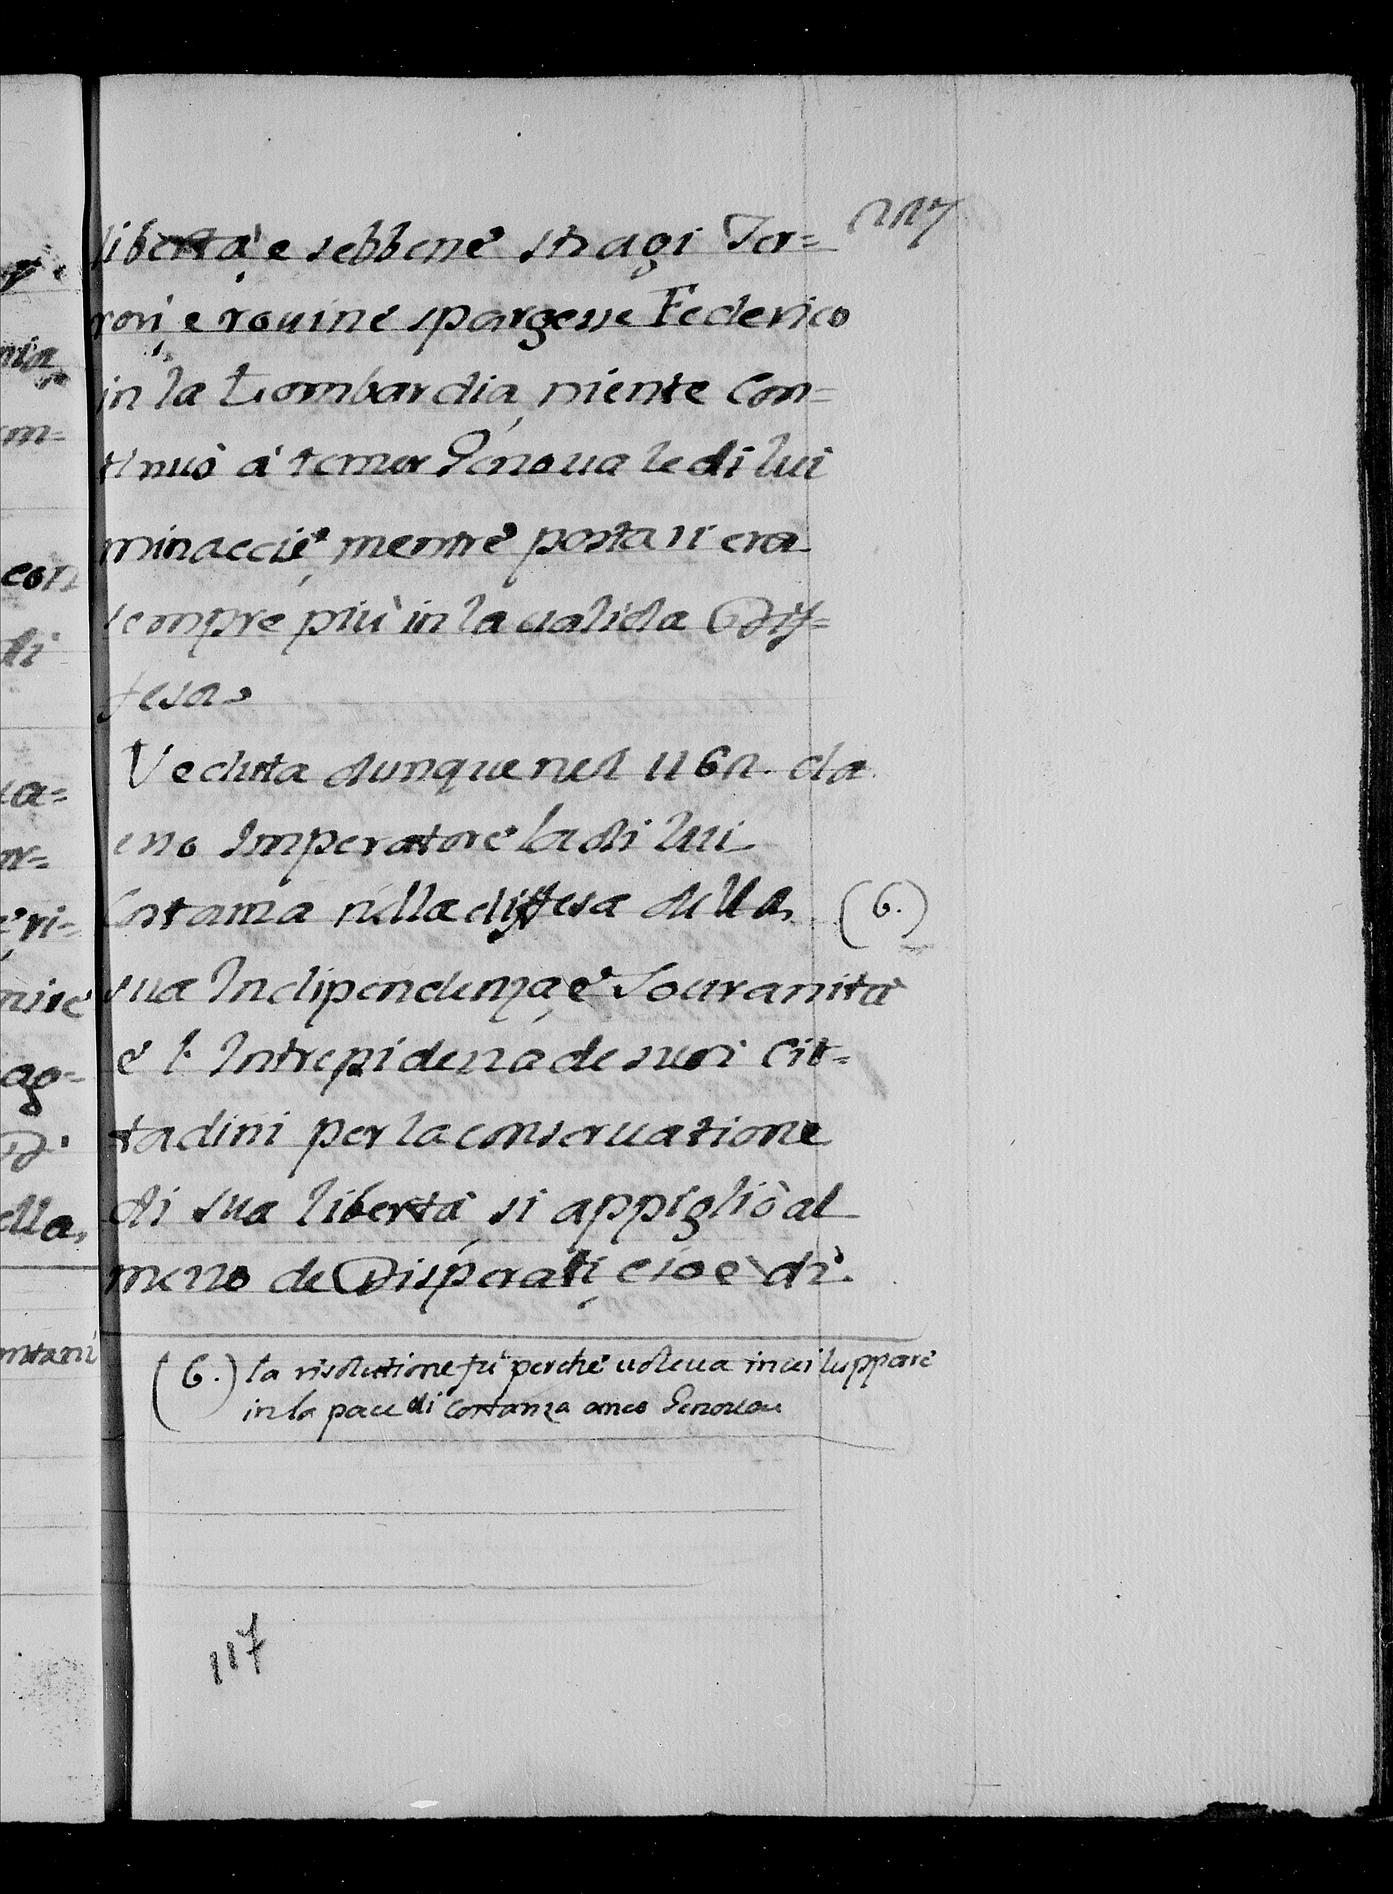 117
libertà, e sebbene stragi Ter=
rori, e rouine spargesse Federico
in la Lombardia, niente con=
tinuò à temer Genoua le di lui
minaccie, mentre posta si era
sempre più in la ualida Dif=
fesa.
Veduta dunque nel 1162. da
eno Imperatore la di lui
Costanza nella diffesa della (6.)
sua Indipendenza, e Souranità
e l'Intrepidezza de suoi Cit=
tadini per la conseruatione
di sua libertà, si appigliò al
mezzo de Disperati, cioè di
(6.) la risolutione fù perche uoleua inuiluppare
in la pace di Costanza anco Genoua
117